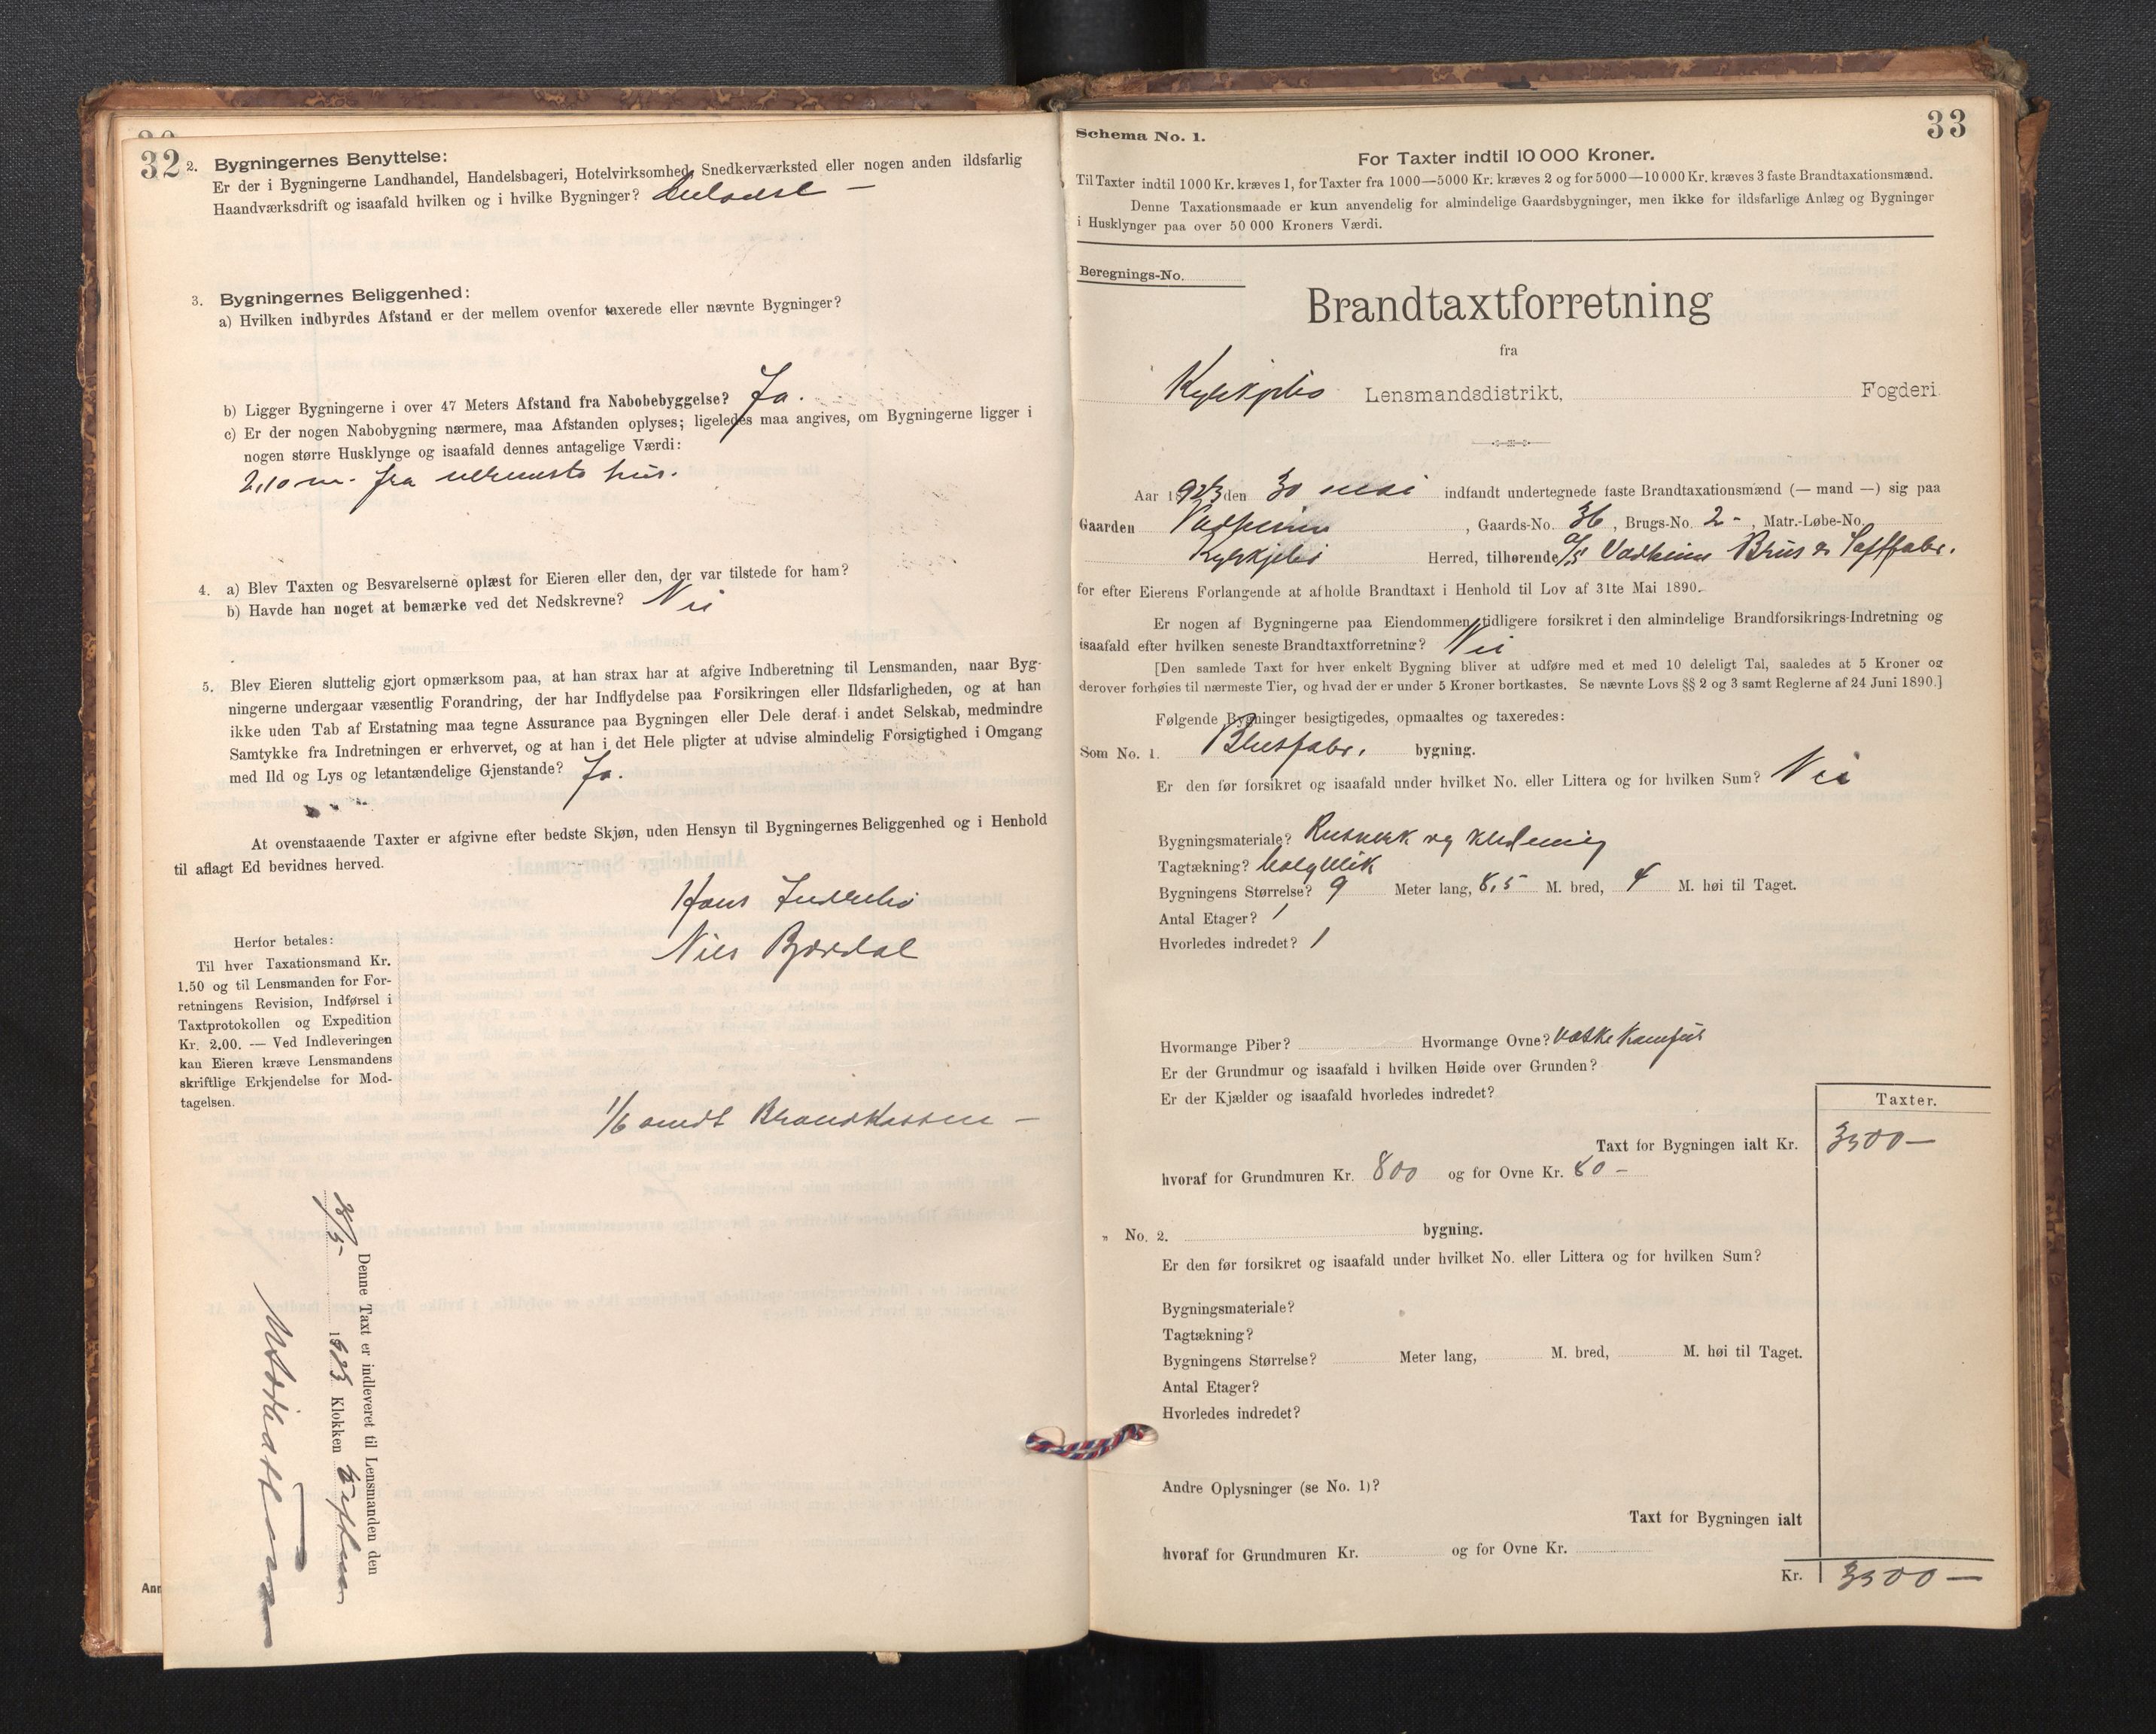 32
2. Bygningernes Benyttelse:
Er der i Bygningerne Landhandel, Handelsbageri, Hotelvirksomhed, Snedkerværksted eller nogen anden ildsfarlig
Haandværksdrift og isaafald hvilken og i hvilke Bygninger?
3. Bygningernes Beliggenhed:
a) Hvilken indbyrdes Afstand er der mellem ovenfor taxerede eller nævnte Bygninger?
b) Ligger Bygningerne i over 47 Meters Afstand fra Nabobebyggelse? Ja.
c) Er der nogen Nabobygning nærmere, maa Afstanden oplyses; ligeledes maa angives, om Bygningerne ligger i
nogen større Husklynge og isaafald dennes antagelige Værdi:
2,10 m. fra nærmeste hus.
4. a) Blev Taxten og Besvarelserne oplæst for Eieren eller den, der var tilstede for ham?
b) Havde han noget at bemærke ved det Nedskrevne? Nei
5. Blev Eieren sluttelig gjort opmærksom paa, at han strax har at afgive Indberetning til Lensmanden, naar Byg-
ningerne undergaar væsentlig Forandring, der har Indflydelse paa Forsikringen eller Ildsfarligheden, og at han
ikke uden Tab af Erstatning maa tegne Assurance paa Bygningen eller Dele deraf i andet Selskab, medmindre
Samtykke fra Indretningen er erhvervet, og at han i det Hele pligter at udvise almindelig Forsigtighed i Omgang
med Ild og Lys og letantændelige Gjenstande? Ja.
At ovenstaaende Taxter er afgivne efter bedste Skjøn, uden Hensyn til Bygningernes Beliggenhed og i Henhold
til aflagt Ed bevidnes herved.
Hans
Nils Bjordal
Herfor betales:
Til hver Taxationsmand Kr.
1.50 og til Lensmanden for For-
retningens Revision, Indførsel i
Taxtprotokollen og Expedition
Kr. 2.00. — Ved Indleveringen
kan Eieren kræve Lensmandens
skriftlige Erkjendelse for Mod-
tagelsen.
1/6 sendt Brandkassen —
Denne Taxt er indleveret til Lensmanden den
1923 Klokken
33
Schema No. 1.
For Taxter indtil 10 000 Kroner.
Til Taxter indtil 1000 Kr. kræves 1, for Taxter fra 1000—5000 Kr. kræves 2 og for 5000—10 000 Kr. kræves 3 faste Brandtaxationsmænd.
Denne Taxationsmaade er kun anvendelig for almindelige Gaardsbygninger, men ikke for ildsfarlige Anlæg og Bygninger
i Husklynger paa over 50 000 Kroners Værdi.
Beregnings-No.
Brandtaxtforretning
fra
Kyrkjebø Lensmandsdistrikt, Fogderi
Aar 1923 den 30 mai indfandt undertegnede faste Brandtaxationsmænd (— mand —) sig paa
Gaarden Vadheim, Gaards-No. 36, Brugs-No. 2 -, Matr.-Løbe-No.
Kyrkjebø Herred, tilhørende A/S Vadheim Brus & Saftfabr.
for efter Eierens Forlangende at afholde Brandtaxt i Henhold til Lov af 31te Mai 1890.
Er nogen af Bygningerne paa Eiendommen tidligere forsikret i den almindelige Brandforsikrings-Indretning og
isaafald efter hvilken seneste Brandtaxtforretning? Nei
[Den samlede Taxt for hver enkelt Bygning bliver at udføre med et med 10 deleligt Tal, saaledes at 5 Kroner og
derover forhøies til nærmeste Tier, og hvad der er under 5 Kroner bortkastes. Se nævnte Lovs §§ 2 og 3 samt Reglerne af 24 Juni 1890.]
Følgende Bygninger besigtigedes, opmaaltes og taxeredes:
Som No. 1. Brusfabr. bygning.
Er den før forsikret og isaafald under hvilket No. eller Littera og for hvilken Sum? Nei
Bygningsmateriale? og klædning
Tagtækning?
Bygningens Størrelse? 9 Meter lang, 8,5 M. bred, 4 M. høi til Taget.
Antal Etager? 1
Hvorledes indredet? 1
Hvormange Piber? Hvormange Ovne? Vaskekomfur
Er der Grundmur og isaafald i hvilken Høide over Grunden?
Er der Kjælder og isaafald hvorledes indredet?
Taxter.
Taxt for Bygningen ialt Kr. 3500 —
hvoraf for Grundmuren Kr. 800 og for Ovne Kr. 80 -
„ No. 2. bygning.
Er den før forsikret og isaafald under hvilket No. eller Littera og for hvilken Sum?
Bygningsmateriale?
Tagtækning?
Bygningens Størrelse? Meter lang, M. bred, M. høi til Taget.
Antal Etager?
Hvorledes indredet?
Andre Oplysninger (se No. 1)?
Taxt for Bygningen ialt
hvoraf for Grundmuren Kr. og for Ovne Kr.
Kr. 3500 —